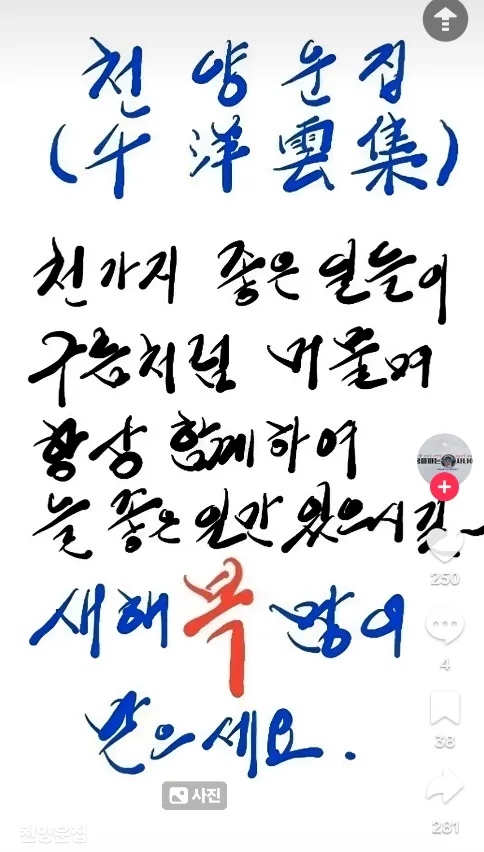 천양운집
(千洋雲集)
천가지 좋은 일들이
구름처럼 머물며
항상 함께하여
늘 좋은 일만 있으시길~
새해 복 많이
받으세요.
250
4
38
281
사진
천양운집